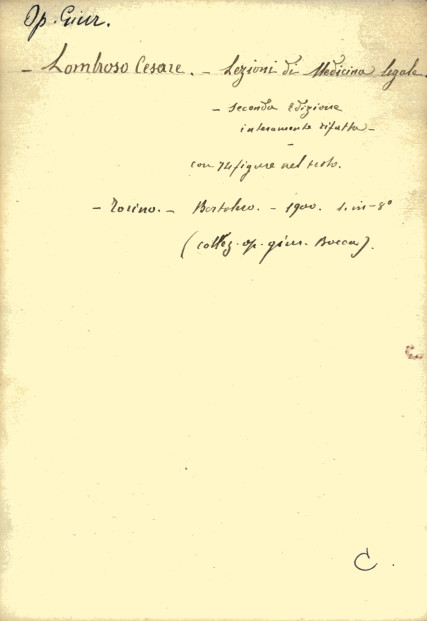 Op. Giur.
- Lombroso Cesare. - Lezioni di Medicina legale.
- Seconda Edizione
interamente rifatta -
con 74 figure nel testo.
- Torino. - Bertolero. - 1900. 1. in-8°
(collez. op. giur. Bocca).
C.